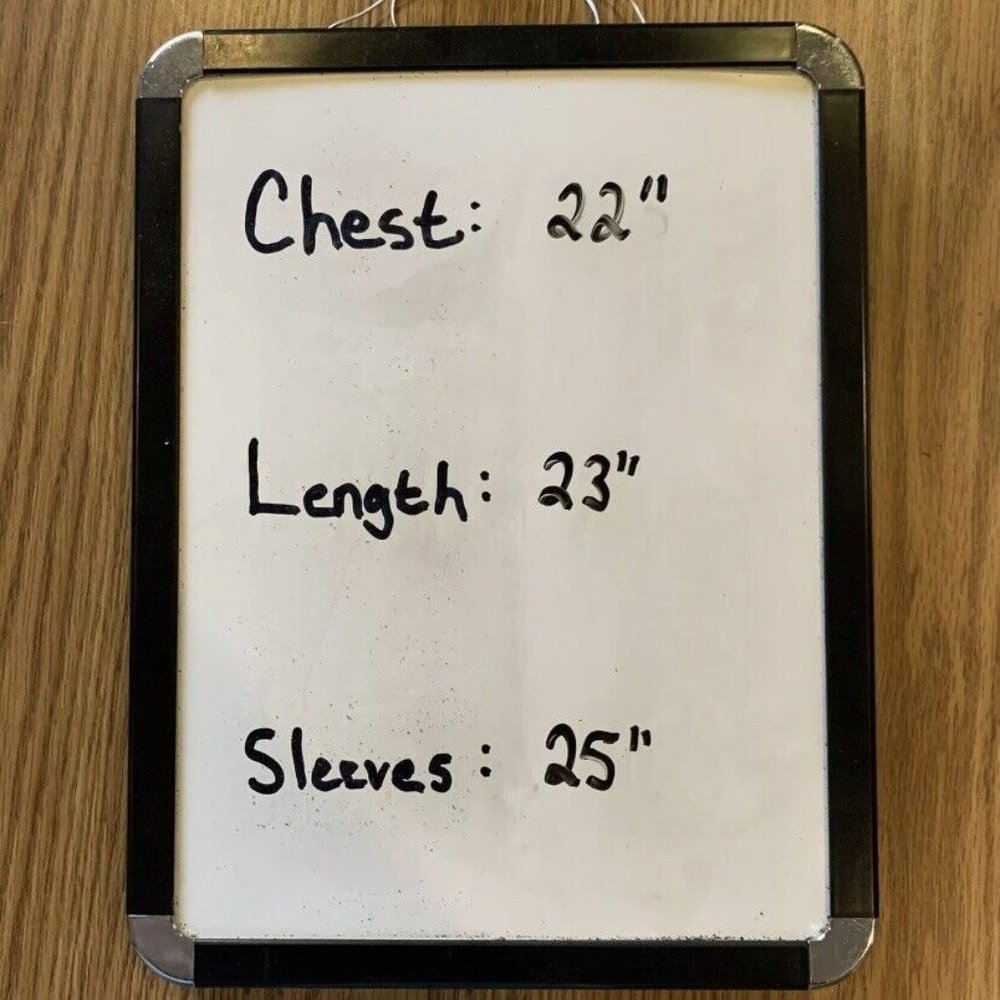 Chest: 22"
Length: 23"
Sleeves: 25"